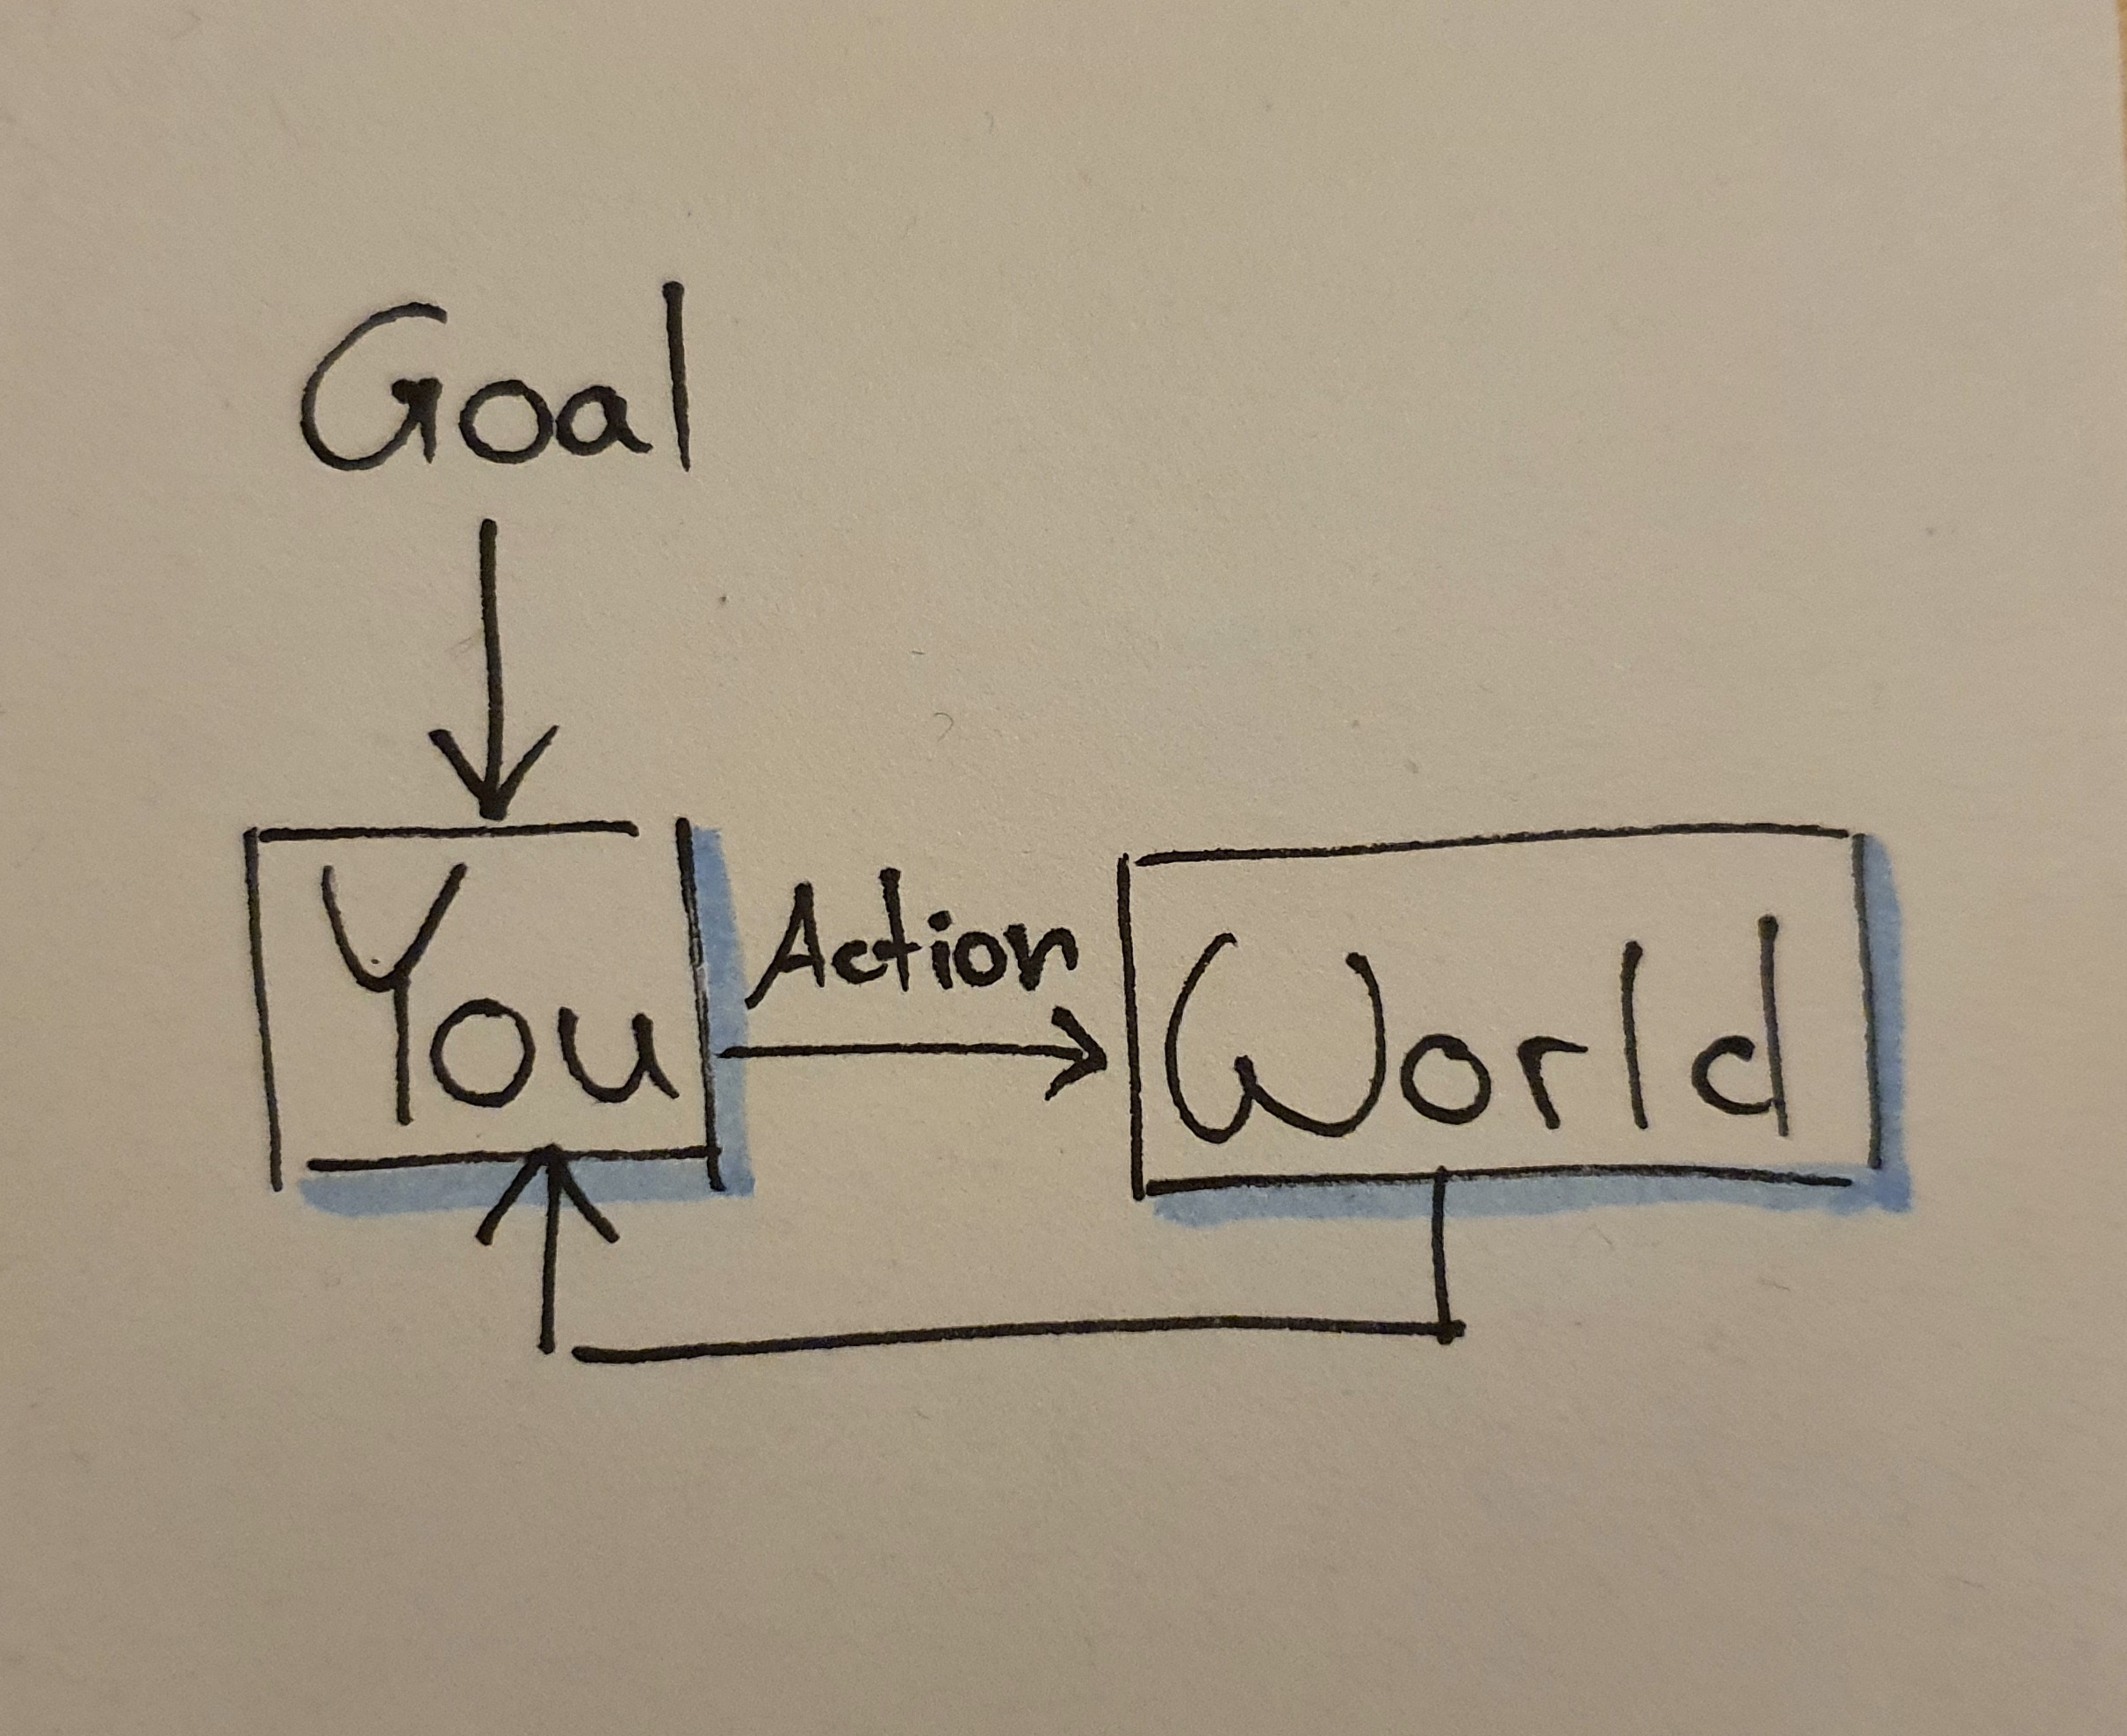 Goal
You
Action
World